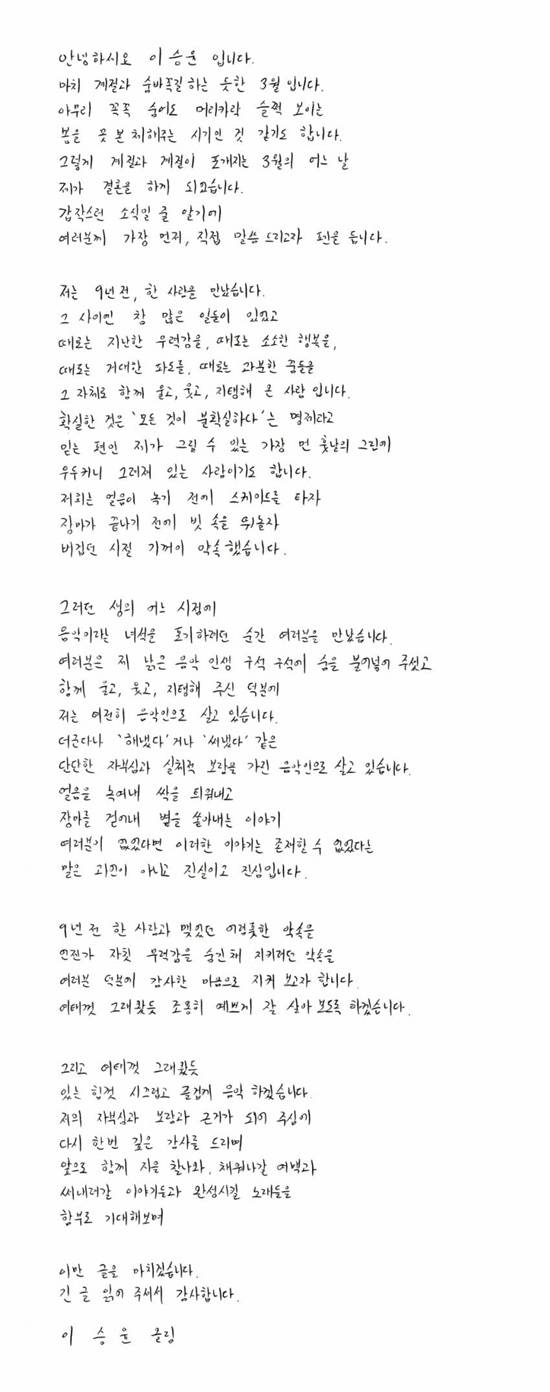 안녕하시오 이승윤 입니다.
마치 계절과 숨바꼭질하는 듯한 3월입니다.
아무리 꼭꼭 숨어도 머리카락 슬쩍 보이는
봄을 못 본 체해주는 시기인 것 같기도 합니다.
그렇게 계절과 계절이 포개지는 3월의 어느 날
제가 결혼을 하게 되었습니다.
갑작스런 소식일 줄 알기에
여러분께 가장 먼저, 직접 말씀드리고자 펜을 듭니다.
저는 9년 전, 한 사람을 만났습니다.
그 사이엔 참 많은 일들이 있었고
때로는 지난한 무력감을, 때로는 소소한 행복을,
때로는 거대한 파도를, 때로는 과분한 꿈들을
그 자체로 함께 울고, 웃고, 지탱해 온 사람입니다.
확실한 것은 '모든 것이 불확실하다'는 명제라고
믿는 편인 제가 그릴 수 있는 가장 먼 훗날의 그림에
우두커니 그려져 있는 사람이기도 합니다.
저희는 얼음이 녹기 전에 스케이트를 타자
장마가 끝나기 전에 빗 속을 뛰놀자
버겁던 시절 기꺼이 약속했습니다.
그러던 생의 어느 시점에
음악이라는 녀석을 포기하려던 순간 여러분을 만났습니다.
여러분은 제 낡은 음악 인생 구석 구석에 숨을 불어넣어 주셨고
함께 울고, 웃고, 지탱해 주신 덕분에
저는 여전히 음악인으로 살고 있습니다.
더군다나 '해냈다'거나 '써냈다' 같은
단단한 자부심과 실체적 보람을 가진 음악인으로 살고 있습니다.
얼음을 녹여내 싹을 틔워내고
장마를 걷어내 볕을 쏟아내는 이야기
여러분이 없었다면 이러한 이야기는 존재할 수 없었다는
말은 과언이 아니고 진실이고 진심입니다.
9년 전 한 사람과 맺었던 어렴풋한 약속을
언젠가 자칫 무력감을 숨긴 채 지키려던 약속을
여러분 덕분에 감사한 마음으로 지켜 보고자 합니다.
여태껏 그래왔듯 조용히 예쁘게 잘 살아 보도록 하겠습니다.
그리고 여태껏 그래왔듯
있는 힘껏 시끄럽고 즐겁게 음악 하겠습니다.
저의 자부심과 보람과 근거가 되어 주심에
다시 한번 깊은 감사를 드리며
앞으로 함께 지을 찰나와, 채워나갈 여백과
써내려갈 이야기들과 완성시킬 노래들을
함부로 기대해보며
이만 글을 마치겠습니다.
긴 글 읽어 주셔서 감사합니다.
이 승 윤 올림